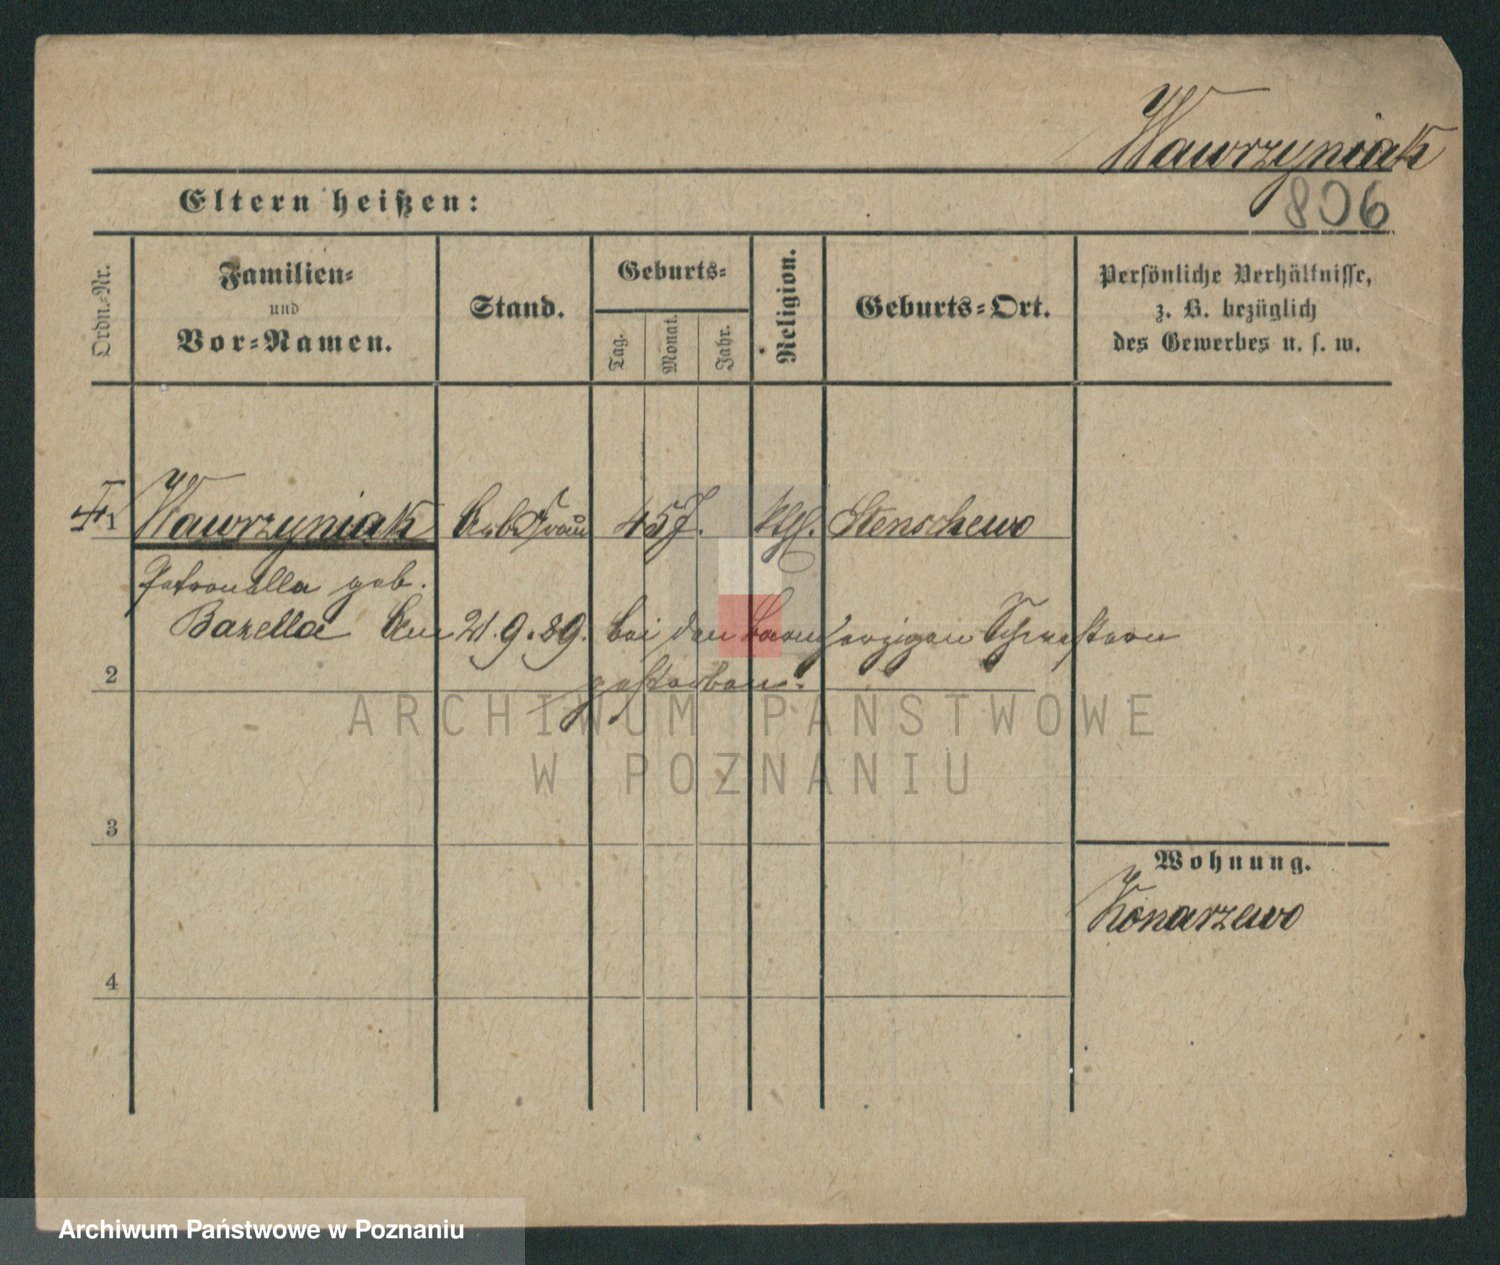 Wawrzyniak
806
Eltern heißen:
Ordn.-Nr.
Familien-
und
Vor-Namen.
Stand.
Geburts-
Tag.
Monat.
Jahr.
Religion.
Geburts-Ort.
Persönliche Verhältnisse,
z. B. bezüglich
des Gewerbes u. s. w.
1 Wawrzyniak Arb. Frau 45 J. kth. Stenschewo
Petronella geb.
Bazella Am 21.9.89. bei den barmherzigen Schwestern
2
gestorben.
ARCHIWUM PAŃSTWOWE
W POZNANIU
3
Wohnung.
Konarzewo
4
Archiwum Państwowe w Poznaniu